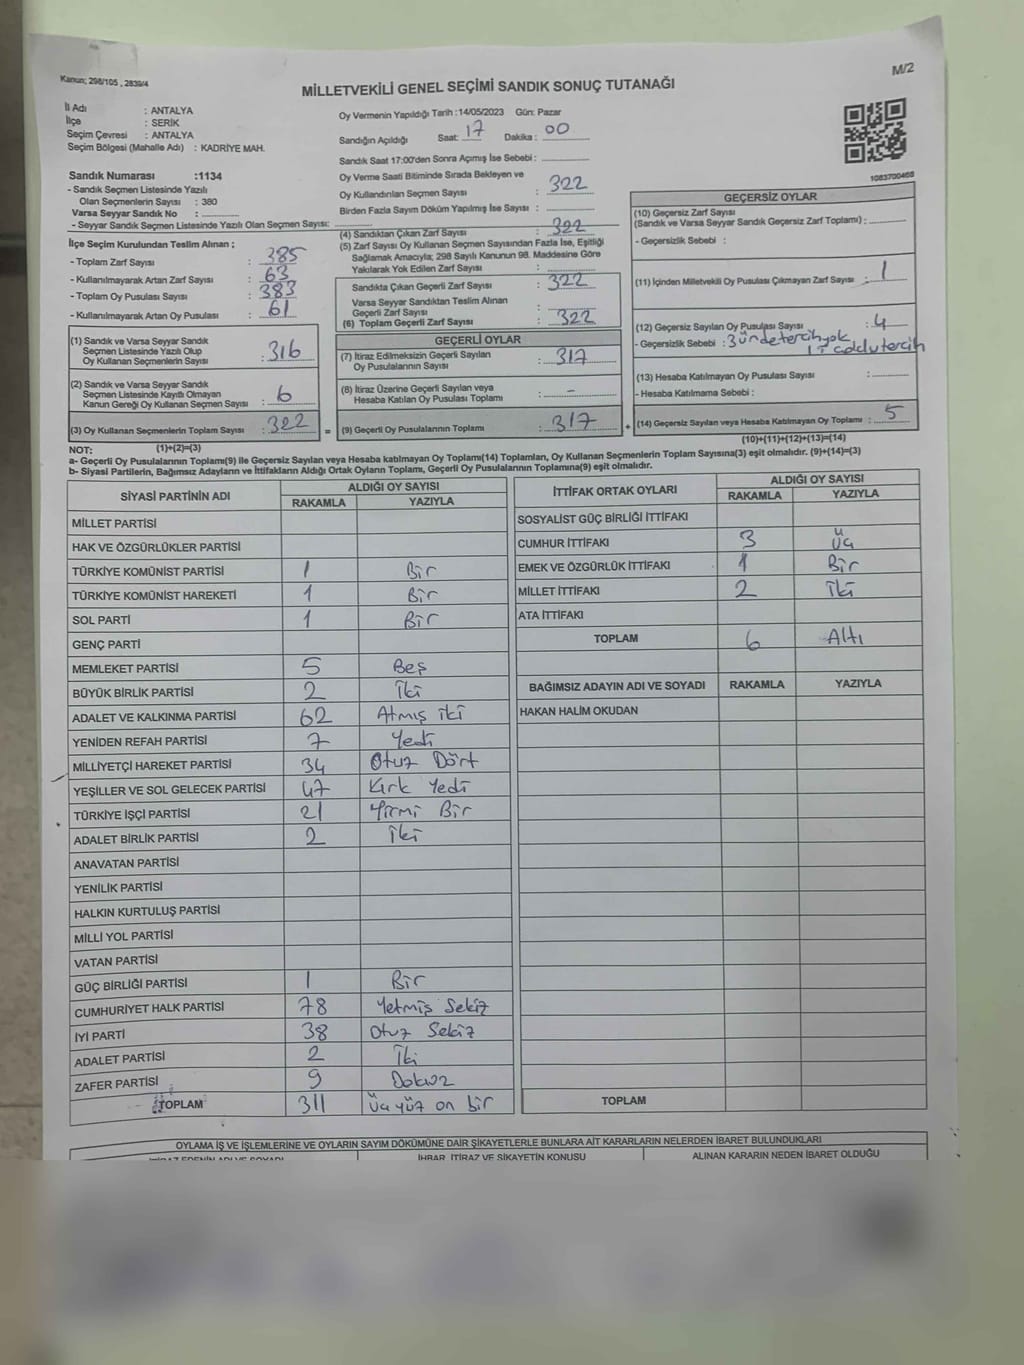 Kanun; 298/105 , 2839/4
M/2
MİLLETVEKİLİ GENEL SEÇİMİ SANDIK SONUÇ TUTANAĞI
İl Adı : ANTALYA
İlçe : SERİK
Seçim Çevresi : ANTALYA
Seçim Bölgesi (Mahalle Adı) : KADRİYE MAH.
Sandık Numarası :1134
- Sandık Seçmen Listesinde Yazılı
Olan Seçmenlerin Sayısı : 380
Varsa Seyyar Sandık No :
- Seyyar Sandık Seçmen Listesinde Yazılı Olan Seçmen Sayısı:
Oy Vermenin Yapıldığı Tarih :14/05/2023 Gün: Pazar
Sandığın Açıldığı Saat: 17 Dakika : 00
Sandık Saat 17:00'den Sonra Açımış İse Sebebi :
Oy Verme Saati Bitiminde Sırada Bekleyen ve
Oy Kullandırılan Seçmen Sayısı : 322
Birden Fazla Sayım Döküm Yapılmış İse Sayısı :
1083700468
İlçe Seçim Kurulundan Teslim Alınan ;
- Toplam Zarf Sayısı : 385
- Kullanılmayarak Artan Zarf Sayısı : 63
- Toplam Oy Pusulası Sayısı : 383
- Kullanılmayarak Artan Oy Pusulası : 61
(1) Sandık ve Varsa Seyyar Sandık
Seçmen Listesinde Yazılı Olup
Oy Kullanan Seçmenlerin Sayısı : 316
(2) Sandık ve Varsa Seyyar Sandık
Seçmen Listesinde Kayıtlı Olmayan
Kanun Gereği Oy Kullanan Seçmen Sayısı : 6
(3) Oy Kullanan Seçmenlerin Toplam Sayısı : 322
(4) Sandıktan Çıkan Zarf Sayısı : 322
(5) Zarf Sayısı Oy Kullanan Seçmen Sayısından Fazla İse, Eşitliği
Sağlamak Amacıyla; 298 Sayılı Kanunun 98. Maddesine Göre
Yakılarak Yok Edilen Zarf Sayısı :
Sandıkta Çıkan Geçerli Zarf Sayısı : 322
Varsa Seyyar Sandıktan Teslim Alınan
Geçerli Zarf Sayısı :
(6) Toplam Geçerli Zarf Sayısı : 322
GEÇERLİ OYLAR
(7) İtiraz Edilmeksizin Geçerli Sayılan
Oy Pusulalarının Sayısı : 317
(8) İtiraz Üzerine Geçerli Sayılan veya
Hesaba Katılan Oy Pusulası Toplamı : -
= (9) Geçerli Oy Pusulalarının Toplamı : 317
GEÇERSİZ OYLAR
(10) Geçersiz Zarf Sayısı
(Sandık ve Varsa Seyyar Sandık Geçersiz Zarf Toplamı) :
- Geçersizlik Sebebi :
(11) İçinden Milletvekili Oy Pusulası Çıkmayan Zarf Sayısı : 1
(12) Geçersiz Sayılan Oy Pusulası Sayısı : 4
- Geçersizlik Sebebi : 3 ünde tercih yok
(13) Hesaba Katılmayan Oy Pusulası Sayısı :
- Hesaba Katılmama Sebebi :
+ (14) Geçersiz Sayılan veya Hesaba Katılmayan Oy Toplamı : 5
NOT: (1)+(2)=(3)
(10)+(11)+(12)+(13)=(14)
a- Geçerli Oy Pusulalarının Toplamı(9) ile Geçersiz Sayılan veya Hesaba Katılmayan Oy Toplamı(14) Toplamları, Oy Kullanan Seçmenlerin Toplam Sayısına(3) eşit olmalıdır. (9)+(14)=(3)
b- Siyasi Partilerin, Bağımsız Adayların ve İttifakların Aldığı Ortak Oyların Toplamı, Geçerli Oy Pusulalarının Toplamına(9) eşit olmalıdır.
SİYASİ PARTİNİN ADI
ALDIĞI OY SAYISI
RAKAMLA YAZIYLA
MİLLET PARTİSİ
HAK VE ÖZGÜRLÜKLER PARTİSİ
TÜRKİYE KOMÜNİST PARTİSİ 1 Bir
TÜRKİYE KOMÜNİST HAREKETİ 1 Bir
SOL PARTİ 1 Bir
GENÇ PARTİ
MEMLEKET PARTİSİ 5 Beş
BÜYÜK BİRLİK PARTİSİ 2 İki
ADALET VE KALKINMA PARTİSİ 62 Atmış iki
YENİDEN REFAH PARTİSİ 7 Yedi
MİLLİYETÇİ HAREKET PARTİSİ 34 Otuz Dört
YEŞİLLER VE SOL GELECEK PARTİSİ 47 Kırk Yedi
TÜRKİYE İŞÇİ PARTİSİ 21 Yirmi Bir
ADALET BİRLİK PARTİSİ 2 İki
ANAVATAN PARTİSİ
YENİLİK PARTİSİ
HALKIN KURTULUŞ PARTİSİ
MİLLİ YOL PARTİSİ
VATAN PARTİSİ
GÜÇ BİRLİĞİ PARTİSİ 1 Bir
CUMHURİYET HALK PARTİSİ 78 Yetmiş Sekiz
İYİ PARTİ 38 Otuz Sekiz
ADALET PARTİSİ 2 İki
ZAFER PARTİSİ 9 Dokuz
TOPLAM 311 Üç yüz on bir
İTTİFAK ORTAK OYLARI
ALDIĞI OY SAYISI
RAKAMLA YAZIYLA
SOSYALİST GÜÇ BİRLİĞİ İTTİFAKI
CUMHUR İTTİFAKI 3 Üç
EMEK VE ÖZGÜRLÜK İTTİFAKI 1 Bir
MİLLET İTTİFAKI 2 İki
ATA İTTİFAKI
TOPLAM 6 Altı
BAĞIMSIZ ADAYIN ADI VE SOYADI RAKAMLA YAZIYLA
HAKAN HALİM OKUDAN
TOPLAM
OYLAMA İŞ VE İŞLEMLERİNE VE OYLARIN SAYIM DÖKÜMÜNE DAİR ŞİKAYETLERLE BUNLARA AİT KARARLARIN NELERDEN İBARET BULUNDUKLARI
İHBAR, İTİRAZ VE ŞİKAYETİN KONUSU
ALINAN KARARIN NEDEN İBARET OLDUĞU